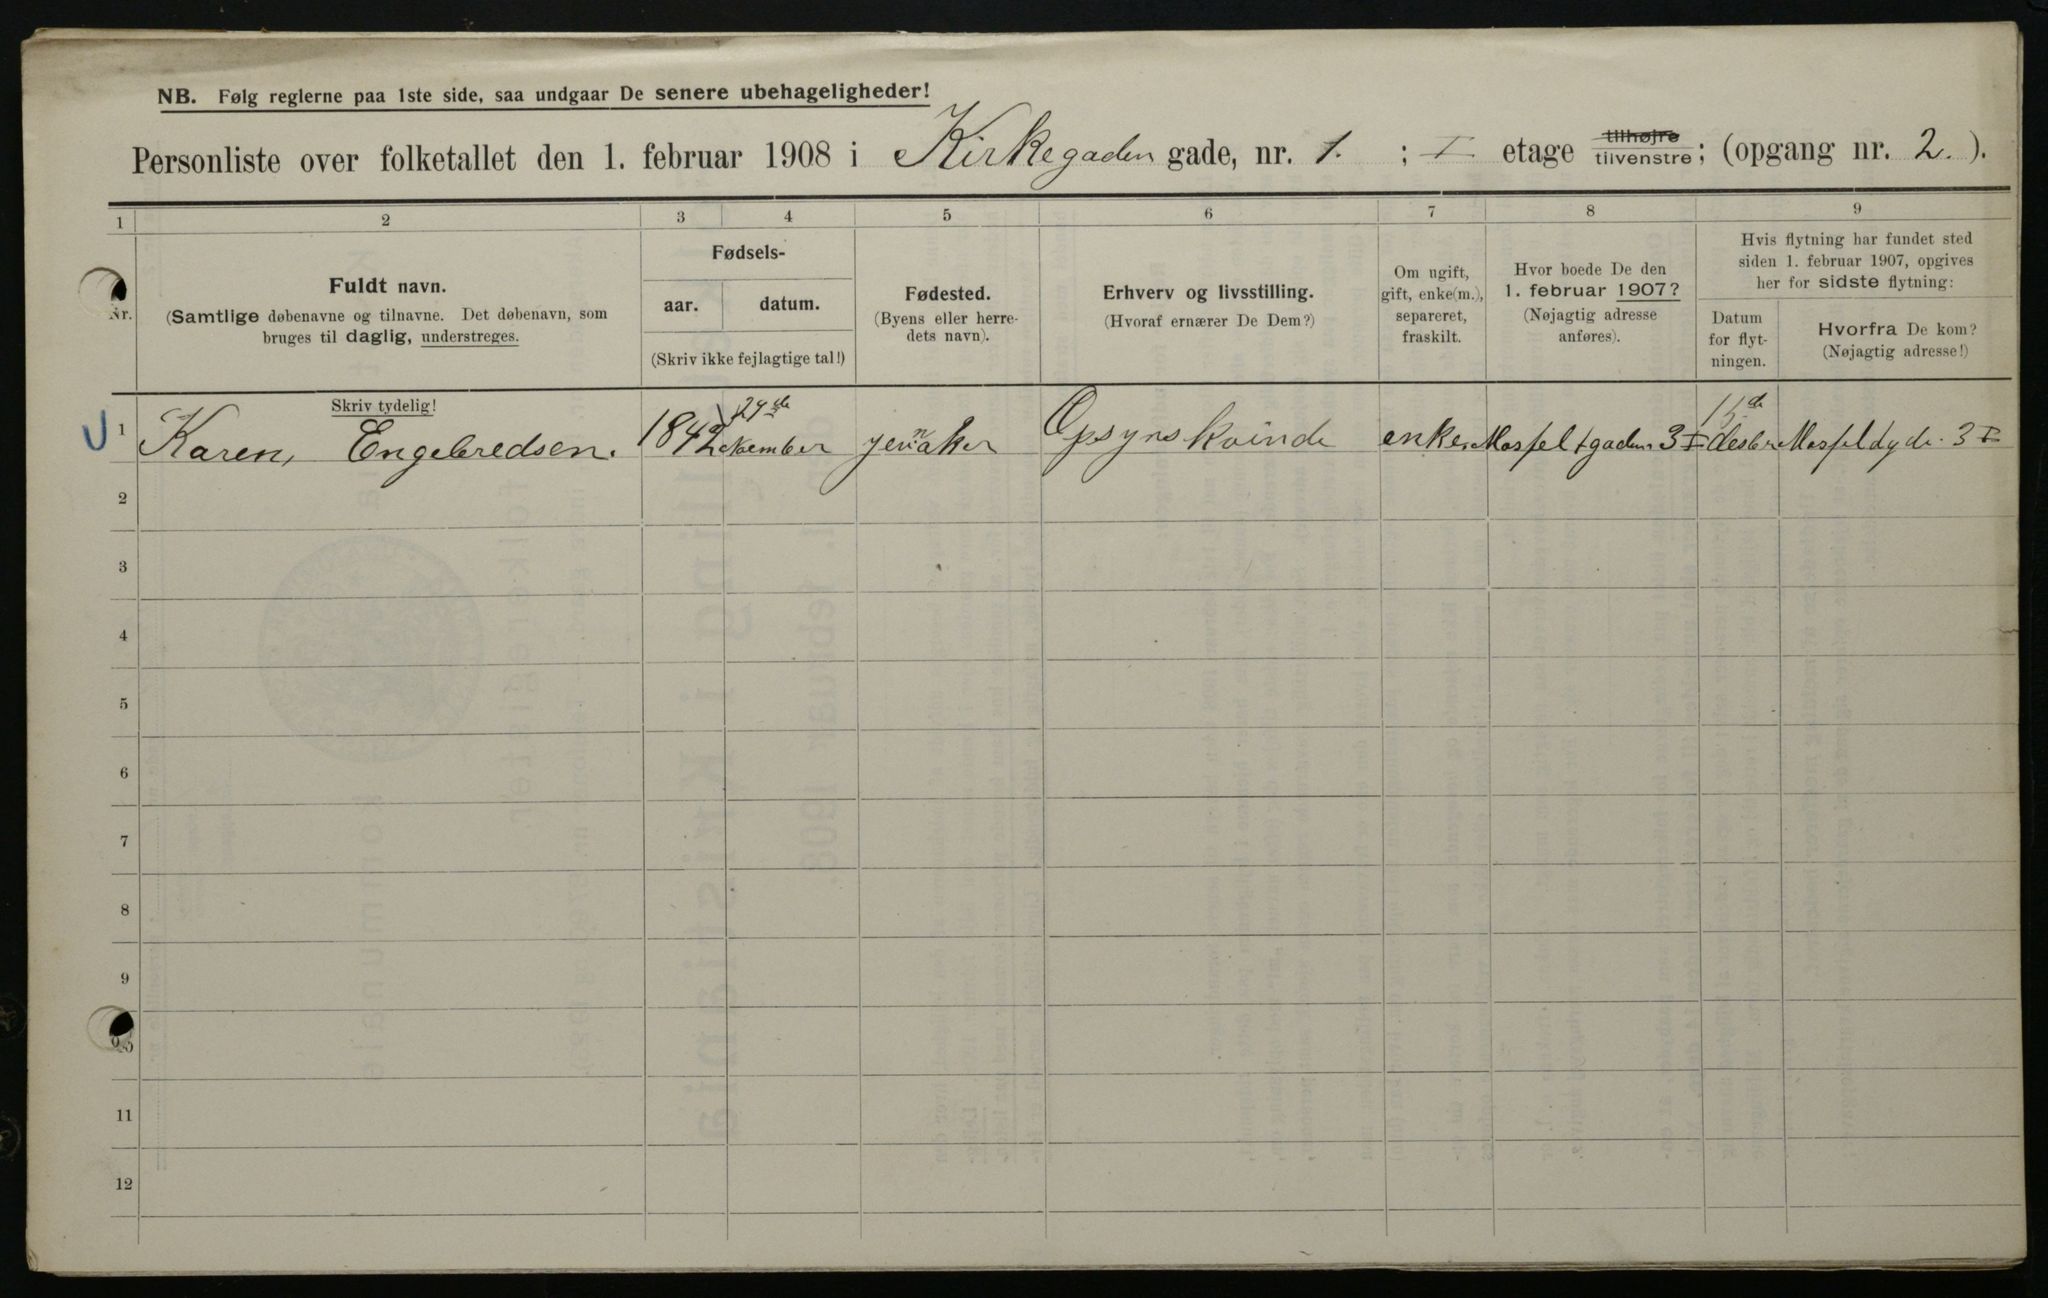 NB. Følg reglerne paa 1ste side, saa undgaar De senere ubehageligheder!
Personliste over folketallet den 1. februar 1908 i Kirkegaden gade, nr. 1. ; I etage tilhøjre tilvenstre; (opgang nr. 2. ).
1 2 3 4 5 6 7 8 9
Nr.
Fuldt navn.
(Samtlige døbenavne og tilnavne. Det døbenavn, som
bruges til daglig, understreges.
Skriv tydelig!
Fødsels-
aar. datum.
(Skriv ikke fejlagtige tal!)
Fødested.
(Byens eller herre-
dets navn).
Erhverv og livsstilling.
(Hvoraf ernærer De Dem?)
Om ugift,
gift, enke(m.),
separeret,
fraskilt.
Hvor boede De den
1. februar 1907?
(Nøjagtig adresse
anføres).
Hvis flytning har fundet sted
siden 1. februar 1907, opgives
her for sidste flytning:
Datum
for flyt-
ningen.
Hvorfra De kom?
(Nøjagtig adresse!)
1 Karen, Engebredsen. 1842 jevnaker Opsynskvinde enke. Mosfeltgaden 3 I 15de desbr 3 I
2
3
4
5
6
7
8
9
11
12